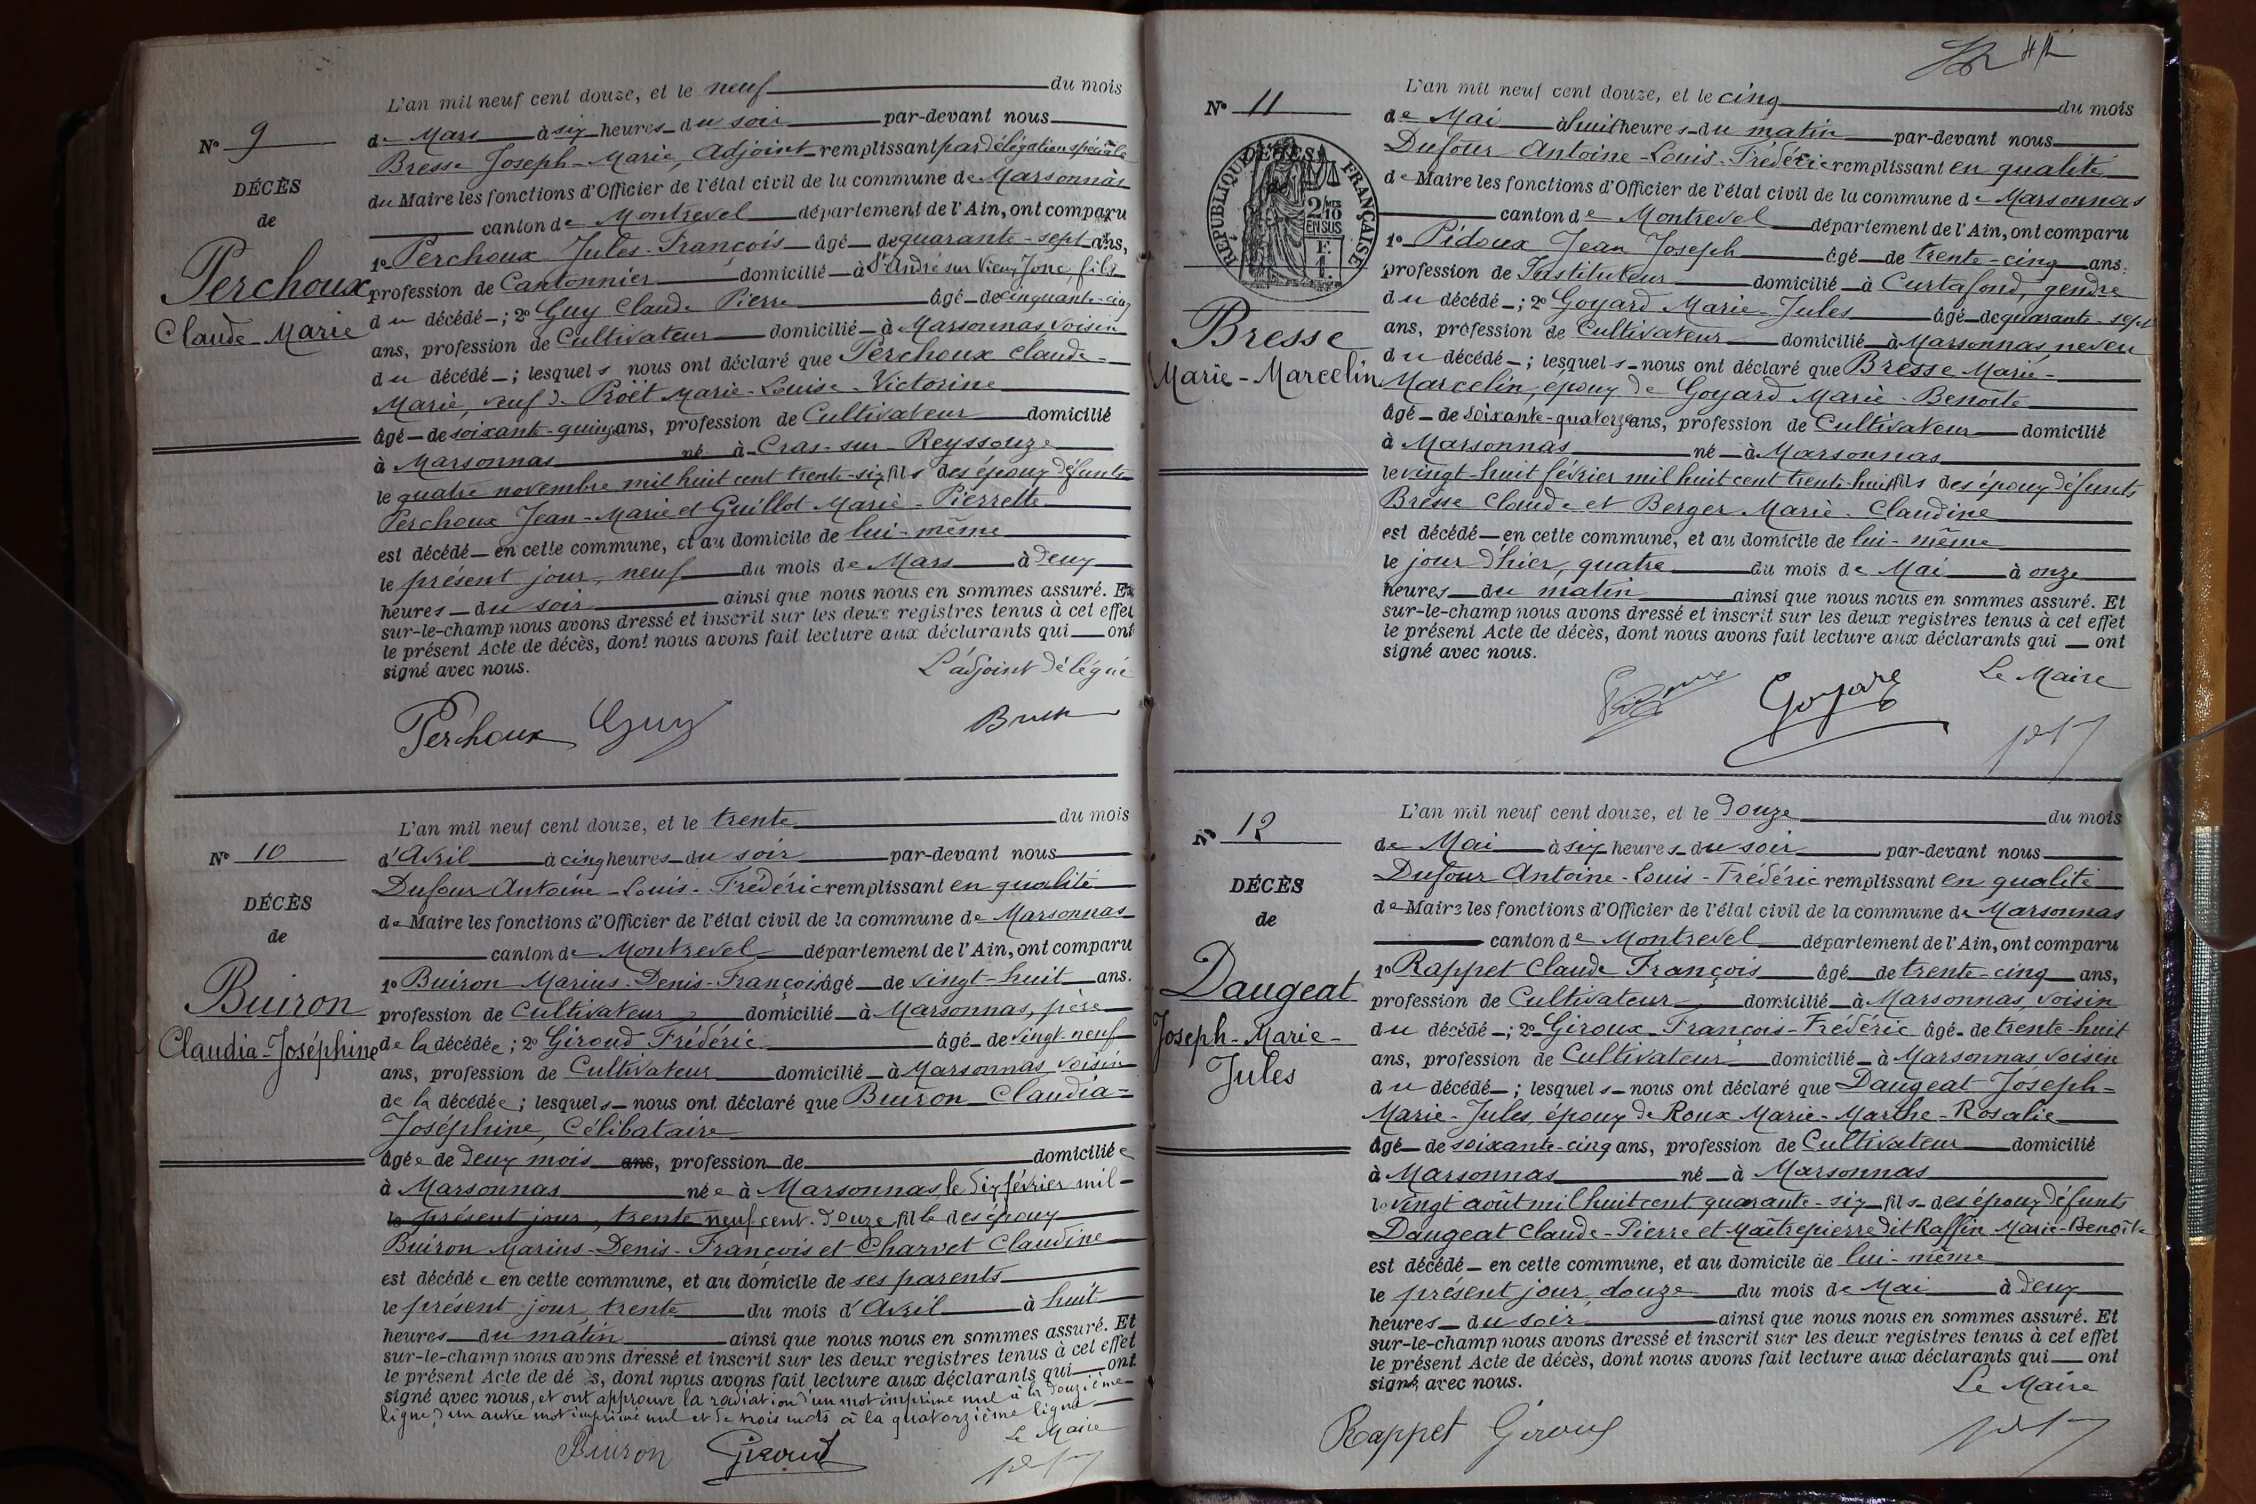 L'an mil neuf cent douze, et le neuf du mois
de Mars à six heures du soir par-devant nous
Bresse Joseph-Marie, Adjoint remplissant par délégation spéciale
du Maire les fonctions d'Officier de l'état civil de la commune de Marsonnas
canton de Montrevel département de l'Ain, ont comparu
1° Perchoux Jules-François âgé de quarante-sept ans,
profession de Cantonnier domicilié à St André sur Vieux Jonc, fils
du décédé ; 2° Guy Claude Pierre âgé de cinquante-cinq
ans, profession de Cultivateur domicilié à Marsonnas, voisin
du décédé ; lesquels nous ont déclaré que Perchoux Claude-
Marie, veuf de Roët Marie-Louise-Victorine
âgé de soixante-quinze ans, profession de Cultivateur domicilié
à Marsonnas né à Cras-sur-Reyssouze
le quatre novembre mil huit cent trente-six fils des époux défunts
Perchoux Jean-Marie et Guillot Marie-Pierrette
est décédé en cette commune, et au domicile de lui-même
le présent jour, neuf du mois de Mars à deux
heures du soir ainsi que nous nous en sommes assuré. Et
sur-le-champ nous avons dressé et inscrit sur les deux registres tenus à cet effet
le présent Acte de décès, dont nous avons fait lecture aux déclarants qui ont
signé avec nous.
L'adjoint délégué
Perchoux Guy Bresse
N° 9
DÉCÈS
de
Perchoux
Claude-Marie
L'an mil neuf cent douze, et le trente du mois
d'Avril à cinq heures du soir par-devant nous
Dufour Antoine-Louis-Frédéric remplissant en qualité
de Maire les fonctions d'Officier de l'état civil de la commune de Marsonnas
canton de Montrevel département de l'Ain, ont comparu
1° Buiron Marius-Denis-François âgé de vingt-huit ans.
profession de Cultivateur domicilié à Marsonnas, père
de la décédée ; 2° Giroud Frédéric âgé de vingt-neuf
ans, profession de Cultivateur domicilié à Marsonnas, voisin
de la décédée ; lesquels nous ont déclaré que Buiron Claudia-
Joséphine, Célibataire
âgée de deux mois ans, profession de domiciliée
à Marsonnas née à Marsonnas le dix février mil-
le présent jour, trente neuf cent douze fille des époux
Buiron Marius-Denis-François et Charvet Claudine
est décédée en cette commune, et au domicile de ses parents
le présent jour, trente du mois d'Avril à huit
heures du matin ainsi que nous nous en sommes assuré. Et
sur-le-champ nous avons dressé et inscrit sur les deux registres tenus à cet effet
le présent Acte de décès, dont nous avons fait lecture aux déclarants qui ont
signé avec nous, et ont approuvé la radiation d'un mot imprimé nul à la douzième
ligne, d'un autre mot imprimé nul et de trois mots à la quatorzième ligne
Le Maire
Buiron Giroud
N° 10
DÉCÈS
de
Buiron
Claudia-Joséphine
L'an mil neuf cent douze, et le cinq du mois
de Mai à huit heures du matin par-devant nous
Dufour Antoine-Louis-Frédéric remplissant en qualité
de Maire les fonctions d'Officier de l'état civil de la commune de Marsonnas
canton de Montrevel département de l'Ain, ont comparu
1° Pidoux Jean Joseph âgé de trente-cinq ans.
profession de Instituteur domicilié à Curtafond, gendre
du décédé ; 2° Goyard Marie-Jules âgé de quarante-sept
ans, profession de Cultivateur domicilié à Marsonnas neveu
du décédé ; lesquels nous ont déclaré que Bresse Marie-
Marcelin, époux de Goyard Marie-Benoîte
âgé de soixante-quatorze ans, profession de Cultivateur domicilié
à Marsonnas né à Marsonnas
le vingt-huit février mil huit cent trente-huit fils des époux défunts
Bresse Claude et Berger Marie-Claudine
est décédé en cette commune, et au domicile de lui-même
le jour d'hier, quatre du mois de Mai à onze
heures du matin ainsi que nous nous en sommes assuré. Et
sur-le-champ nous avons dressé et inscrit sur les deux registres tenus à cet effet
le présent Acte de décès, dont nous avons fait lecture aux déclarants qui ont
signé avec nous.
Le Maire
Pidoux Goyard
N° 11
DÉCÈS
RÉPUBLIQUE FRANÇAISE
2/10
EN SUS
Bresse
Marie-Marcelin
L'an mil neuf cent douze, et le douze du mois
de Mai à six heures du soir par-devant nous
Dufour Antoine-Louis-Frédéric remplissant en qualité
de Maire les fonctions d'Officier de l'état civil de la commune de Marsonnas
canton de Montrevel département de l'Ain, ont comparu
1° Rappet Claude François âgé de trente-cinq ans,
profession de Cultivateur domicilié à Marsonnas, voisin
du décédé ; 2° Giroux François-Frédéric âgé de trente-huit
ans, profession de Cultivateur domicilié à Marsonnas, voisin
du décédé ; lesquels nous ont déclaré que Daugeat Joseph-
Marie-Jules, époux de Roux Marie-Marthe-Rosalie
âgé de soixante-cinq ans, profession de Cultivateur domicilié
à Marsonnas né à Marsonnas
le vingt août mil huit cent quarante-six fils des époux défunts
Daugeat Claude-Pierre et Maîtrepierre dit Raffin Marie-Benoîte
est décédé en cette commune, et au domicile de lui-même
le présent jour, douze du mois de Mai à deux
heures du soir ainsi que nous nous en sommes assuré. Et
sur-le-champ nous avons dressé et inscrit sur les deux registres tenus à cet effet
le présent Acte de décès, dont nous avons fait lecture aux déclarants qui ont
signé avec nous.
Le Maire
Rappet Giroux
N° 12
DÉCÈS
de
Daugeat
Joseph-Marie-
Jules